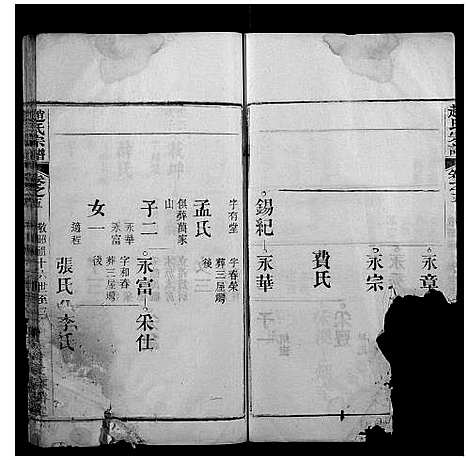 趙氏宗譜
卷之五
永章
永宗
費氏
錫紀 永華
字有堂 字春榮
孟氏 葬三屋塆後
俱葬萬家山
子二 永富 采仕
永華 字和春
永富 葬三屋塆後
女一 張氏 李氏
適程
趙氏宗譜
卷之五